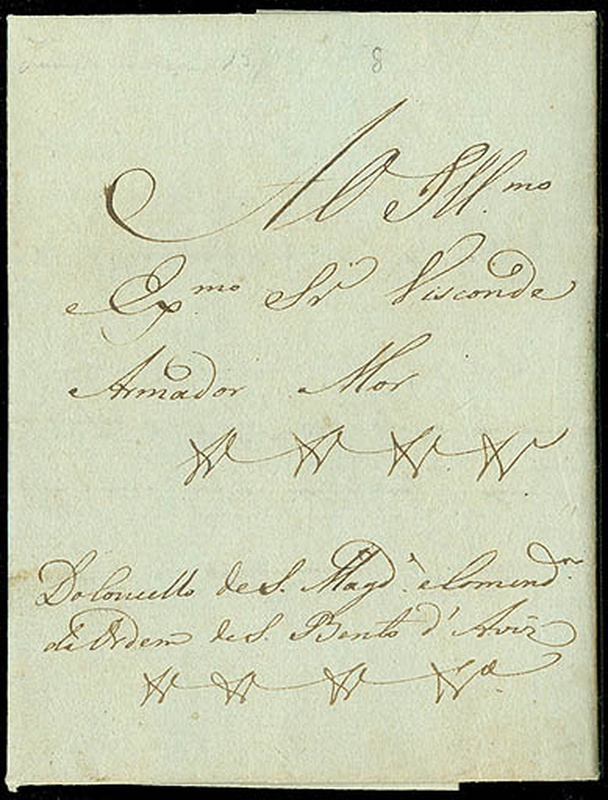 8
Ao Ill.mo
Ex.mo Sr Visconde
Armador Mor
Do Concello de S. Magd.e e Comend.or
da Ordem de S. Bento d'Aviz